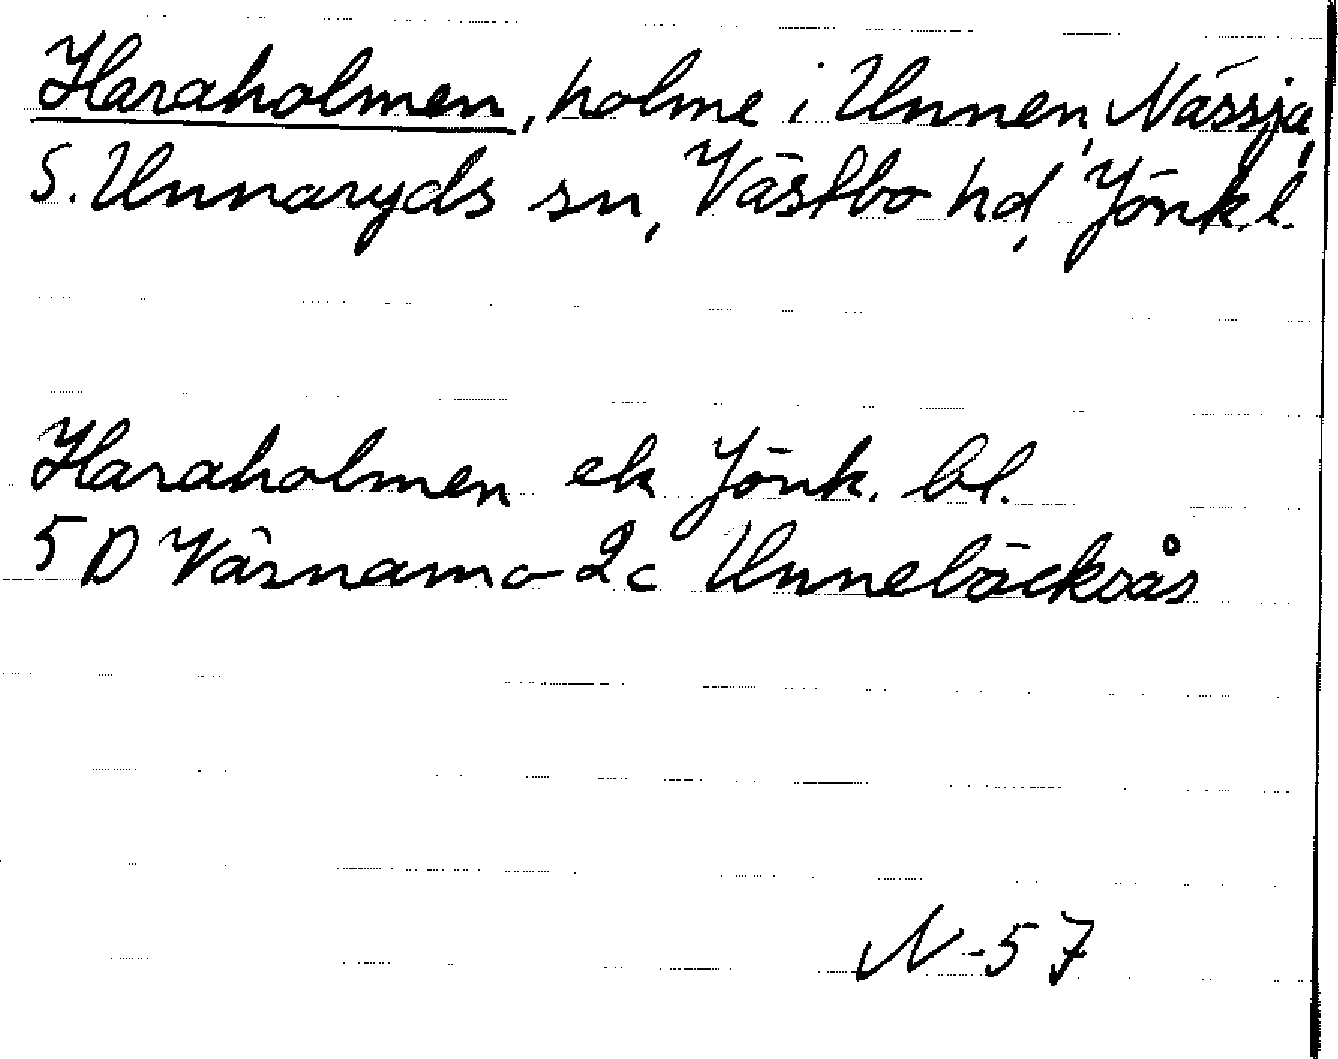 Haraholmen, holme i Unnen, Nässja,
S. Unnaryds sn, Västbo hd, Jönk.l.
Haraholmen ek Jönk. bl.
5 D Värnamo 2c Unnebäcksås
N-57